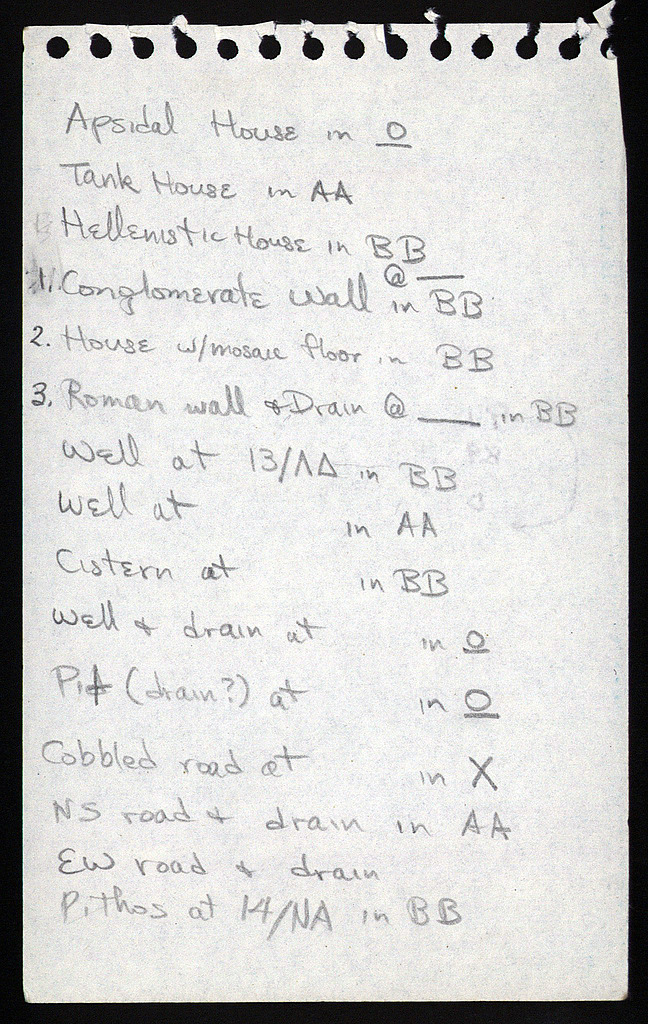 Apsidal House in O
Tank House in AA
Hellenistic House in BB
1. Conglomerate Wall @ ___ in BB
2. House w/mosaic floor in BB
3. Roman wall & Drain @ ____, in BB
Well at 13/ΛΔ in BB
Well at in AA
Cistern at in BB
Well & drain at in O
Pit (drain?) at in O
Cobbled road at in X
NS road & drain in AA
EW road & drain
Pithos at 14/NA in BB